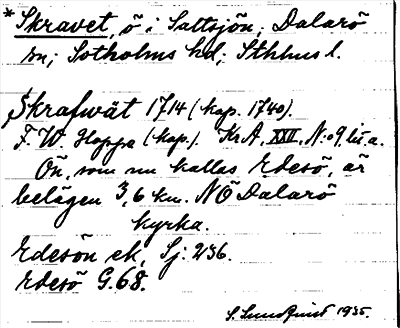 *Skravet, ö i Saltsjön; Dalarö
sn; Sotholms hd; Sthlms l.
Skrafwät 1714 (kop. 1740).
F. W. Hoppe (kop.). KrA, XXII, N:o 9, lit. a.
Ön, som nu kallas Edesö, är
belägen 3,6 km. NÖ Dalarö
kyrka.
Edesön ek. Sj: 236.
Edesö G. 68.
S. Sundqvist 1935.